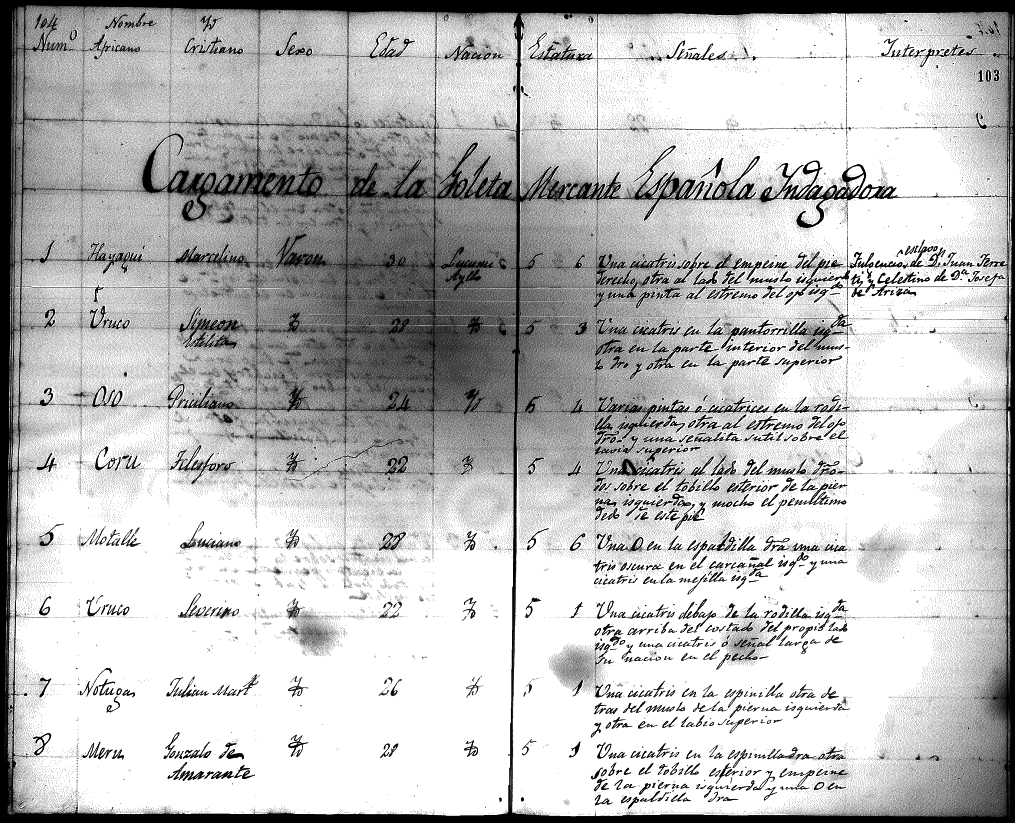 104 Nombre Yd
Num.o Africano Cristiano Sexo Edad Nacion Estatura Señales Interpretes
103
Cargamento de la Goleta Mercante Española Indagadora
1 Hayaqui Marcelino Varon 30 Lucumi 5 6 Una cicatris sobre el empeine del pie
Ayllo
derecho, otra al lado del muslo izquierdo
y una pinta al estremo del ojo isqdo
esclavo
Fulgencio, de Dn Juan Ferre
tis y Celestino de Da Josefa
de Ariza
2 Uruco Simeon Yd 28 Yd 5 3 Una cicatris en la pantorrilla isqda
Estilita
otra en la parte interior del mus-
lo dro y otra en la parte superior
3 Oso Priciliano Yd 24 Yd 5 4 Varias pintas ó cicatrices en la rodi-
lla isquierda, otra al estremo del ojo
dro y una señalita sutil sobre el
lavio superior
4 Coru Filesforo Yd 22 Yd 5 4 Una cicatris al lado del muslo dro
dos sobre el tobillo esterior de la pier
na isquierda, y mocho el penultimo
dedo de este pié
5 Motalle Luciano Yd 28 Yd 5 6 Una O en la espaldilla dra una cica
tris oscura en el carcañal isqdo y una
cicatris en la mejilla isqda
6 Uruco Severino Yd 22 Yd 5 1 Una cicatris debajo de la rodilla isqda
otra arriba del costado del propio lado
isqdo y una cicatris ó señal larga de
su nacion en el pecho
7 Notuga Julian Mart Yd 26 Yd 5 1 Una cicatris en la espinilla otra de
tras del muslo de la pierna isquierda
y otra en el labio superior
8 Meru Gonzalo de Yd 28 Yd 5 1 Una cicatris en la espinilla dra otra
Amarante
sobre el tobillo esterior y empeine
de la pierna isquierda y una O en
la espaldilla dra